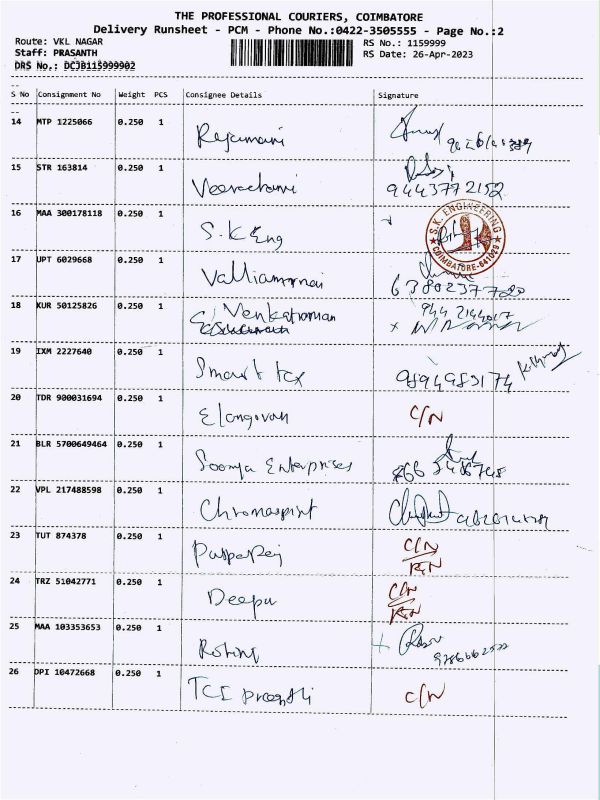 THE PROFESSIONAL COURIERS, COIMBATORE
Delivery Runsheet - PCM - Phone No.:0422-3505555 - Page No.:2
Route: VKL NAGAR RS No.: 1159999
Staff: PRASANTH RS Date: 26-Apr-2023
DRS No.: DCJB115999902
S No Consignment No Weight PCS Consignee Details Signature
14 MTP 1225066 0.250 1 Rajamani
15 STR 163814 0.250 1 9443772152
16 MAA 300178118 0.250 1 S.K Eng
S.K. ENGINEERING
COIMBATORE-641029
17 UPT 6029668 0.250 1 Valliammai 6380237720
18 KUR 50125826 0.250 1 Venkatraman
19 IXM 2227640 0.250 1 Smart tex
20 TDR 900031694 0.250 1 Elangovan C/N
21 BLR 5700649464 0.250 1 Soorya Enterprises
22 VPL 217488598 0.250 1 Chromasprint
23 TUT 874378 0.250 1 C/N
24 TRZ 51042771 0.250 1 Deepa C/N
25 MAA 103353653 0.250 1
26 DPI 10472668 0.250 1 TCI C/N